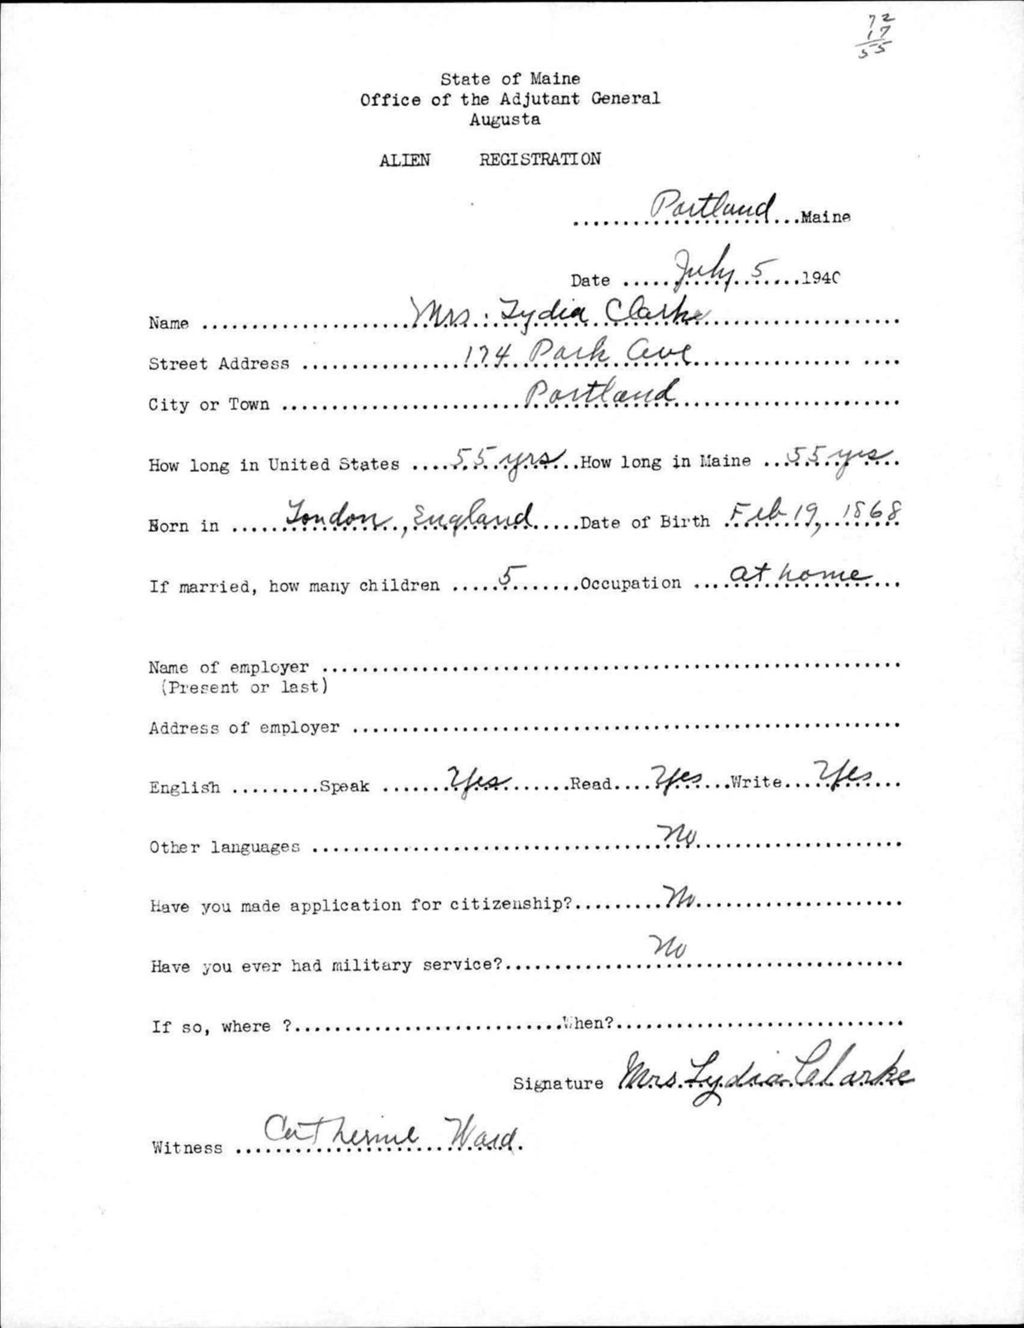 72
17
55
State of Maine
Office of the Adjutant General
Augusta
ALIEN REGISTRATION
.........Portland...Maine
Date .....July 5.....1940
Name .....................Mrs. Lydia Clarke.....................
Street Address .................174 Park Ave................... ....
City or Town .........................Portland..........................
How long in United States ....55 yrs...How long in Maine ...55 yrs.
Born in .....London, England.....Date of Birth .Feb 19, 1868
If married, how many children .....5.......Occupation ....at home...
Name of employer ............................................................
(Present or last)
Address of employer .........................................................
English .........Speak .......Yes.......Read....Yes...Write...Yes...
Other languages ...................................No......................
Have you made application for citizenship?.........No.....................
Have you ever had military service?................No......................
If so, where ?...........................When?.............................
Signature Mrs. Lydia Clarke
Witness ...Catherine Ward.